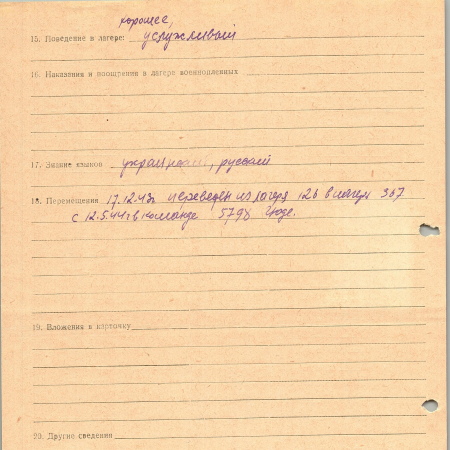 хорошее,
15. Поведение в лагере: услужливый
16. Наказания и поощрения в лагере военнопленных
17. Знание языков украинский, русский
18. Перемещения 17.12.43г переведен из лагеря 126 в лагерь 367
с 12.5.44г в команде 5798
19. Вложения в карточку
20. Другие сведения